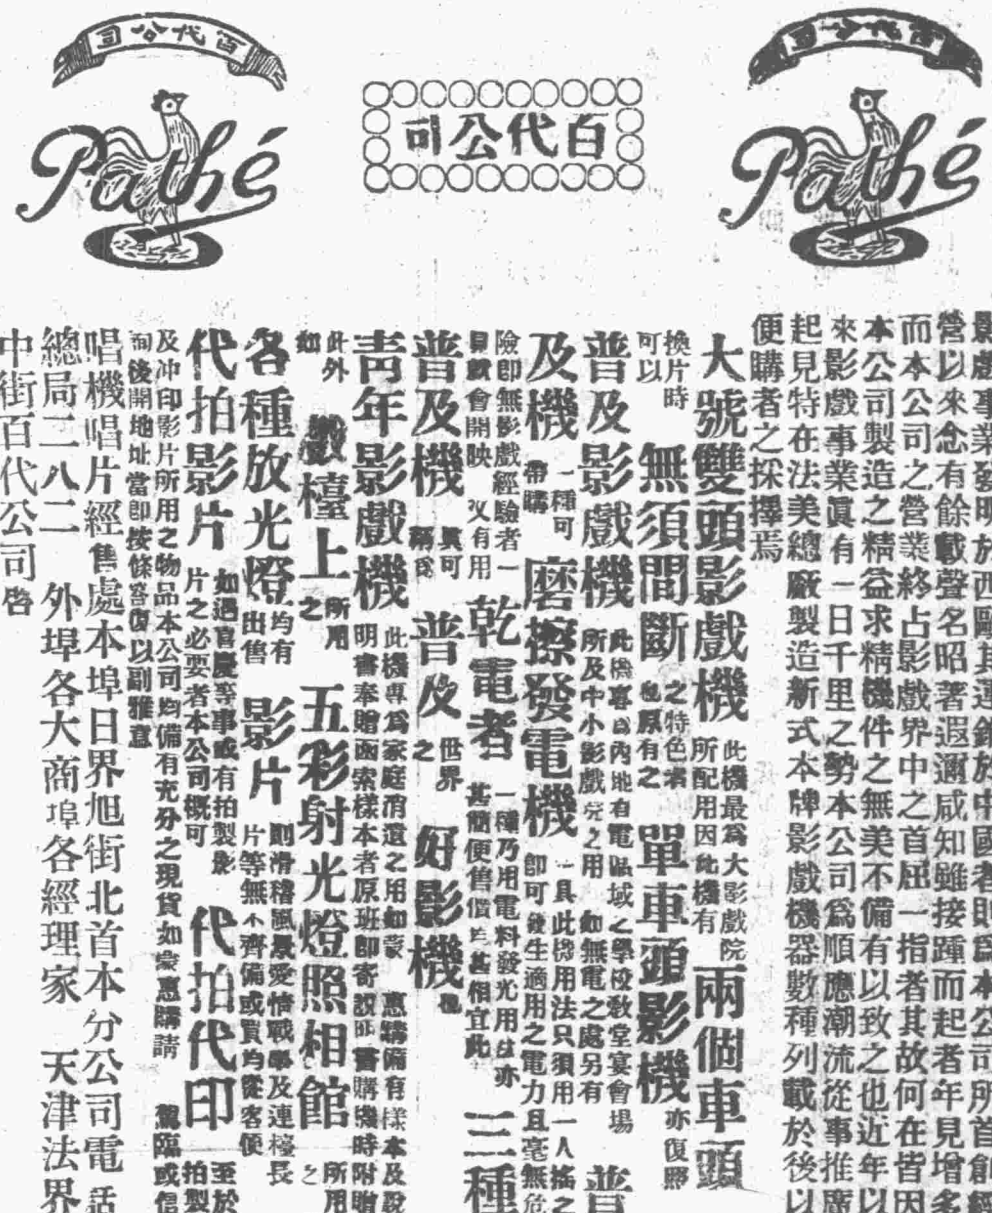 百代公司
Pathé
百代公司
百代公司
Pathé
影戲事業發明於西歐其運銷於中國者則爲本公司所首創經
營以來念有餘載聲名昭著遐邇咸知雖接踵而起者年見增多
而本公司之營業終占影戲界中之首屈一指者其故何在皆因
本公司製造之精益求精機件之無美不備有以致之也近年以
來影戲事業眞有一日千里之勢本公司爲順應潮流從事推廣
起見特在法美總廠製造新式本牌影戲機器數種列載於後以
便購者之採擇焉
大號雙頭影戲機 此機最爲大影戲院所配用因此機有 兩個車頭
換片時可以 無須間斷 之特色 原有之 單車頭影機 亦復照
普及影戲機 此機專爲內地有電區域之學校敎堂宴會場所及中小影戲院之用如無電之處另有 普
及機 一種可帶購 磨擦發電機 一具此機用法只須用一人搖之卽可發生適用之電力且毫無危
險卽無影戲經驗者一 會開映 又有用 乾電者 一種乃用電料發光用法亦甚簡便售價 甚相宜此 三種
普及機 眞可 普及 世界之 好影機
靑年影戲機 此機專爲家庭消遣之用如蒙惠購備有樣本及說明書奉贈函索樣本者原班卽寄 購機時附贈
此外如 戲檯上 所用之 五彩射光燈照相館 所用之
各種放光燈 均有出售 影片 則滑稽風景愛情戰爭及連檯長片等無不齊備或買均從客便
代拍影片 如遇喜慶等事或有拍製影片之必要者本公司槪可 代拍代印 至於拍製
及冲印影片所用之物品本公司均備有充分之現貨如蒙惠購請駕臨或信
詢後開地址當卽按條答復以副雅意
唱機唱片經售處本埠日界旭街北首本分公司電話
總局二八二 外埠各大商埠各經理家 天津法界
中街百代公司啓